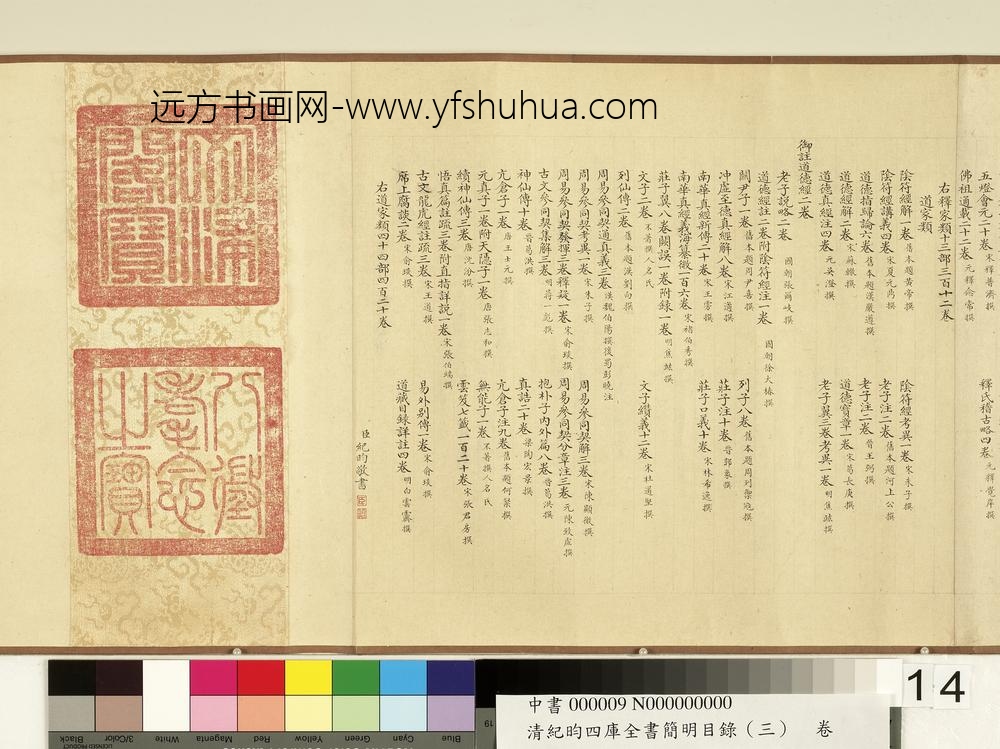 远方书画网-www.yfshuhua.com
五燈會元二十卷 宋釋普濟撰
佛祖通載二十二卷 元釋念常撰 釋氏稽古略四卷 元釋覺岸撰
右釋家類十三部三百十二卷
道家類
陰符經解一卷 舊本題黃帝撰 陰符經考異一卷 宋朱子撰
陰符經講義四卷 宋夏元鼎撰 老子注二卷 舊本題河上公撰
道德指歸論六卷 舊本題漢嚴遵撰 老子注二卷 晉王弼撰
道德經解二卷 宋蘇轍撰 道德寶章一卷 宋葛長庚撰
道德真經註四卷 元吳澄撰 老子翼三卷考異一卷 明焦竑撰
御註道德經二卷
老子說略二卷 國朝張爾岐撰
道德經註二卷附陰符經注一卷 國朝徐大椿撰
關尹子一卷 舊本題周尹喜撰 列子八卷 舊本題周列禦寇撰
沖虛至德真經解八卷 宋江遹撰 莊子注十卷 晉郭象撰
南華真經新傳二十卷 宋王雱撰 莊子口義十卷 宋林希逸撰
南華真經義海纂微一百六卷 宋褚伯秀撰
莊子翼八卷闕誤一卷附錄一卷 明焦竑撰
文子二卷 不著撰人名氏 文子纘義十二卷 宋杜道堅撰
列仙傳二卷 舊本題漢劉向撰
周易參同契通真義三卷 漢魏伯陽撰後蜀彭曉注
周易參同契考異一卷 宋朱子撰 周易參同契解三卷 宋陳顯微撰
周易參同契發揮三卷釋疑一卷 宋俞琰撰 周易參同契分章注三卷 元陳致虛撰
古文參同契集解三卷 明蔣一彪撰 抱朴子內外篇八卷 晉葛洪撰
神仙傳十卷 晉葛洪撰 真誥二十卷 梁陶宏景撰
亢倉子一卷 唐王士元撰 亢倉子注九卷 舊本題何粲撰
元真子一卷附天隱子一卷 唐張志和撰 無能子一卷 不著撰人名氏
續神仙傳三卷 唐沈汾撰 雲笈七籤一百二十卷 宋張君房撰
悟真篇註疏三卷附直指詳說一卷 宋張伯端撰
古文龍虎經註疏三卷 宋王道撰 易外別傳一卷 宋俞琰撰
席上腐談二卷 宋俞琰撰 道藏目錄詳註四卷 明白雲霽撰
右道家類四十四部四百三十卷
臣紀昀敬書
八徵耄念之寶
Black
3/Color
White
Magenta
Red
Yellow
Green
Cyan
Blue
19
14
中書 000009 N000000000
清紀昀四庫全書簡明目錄（三） 卷